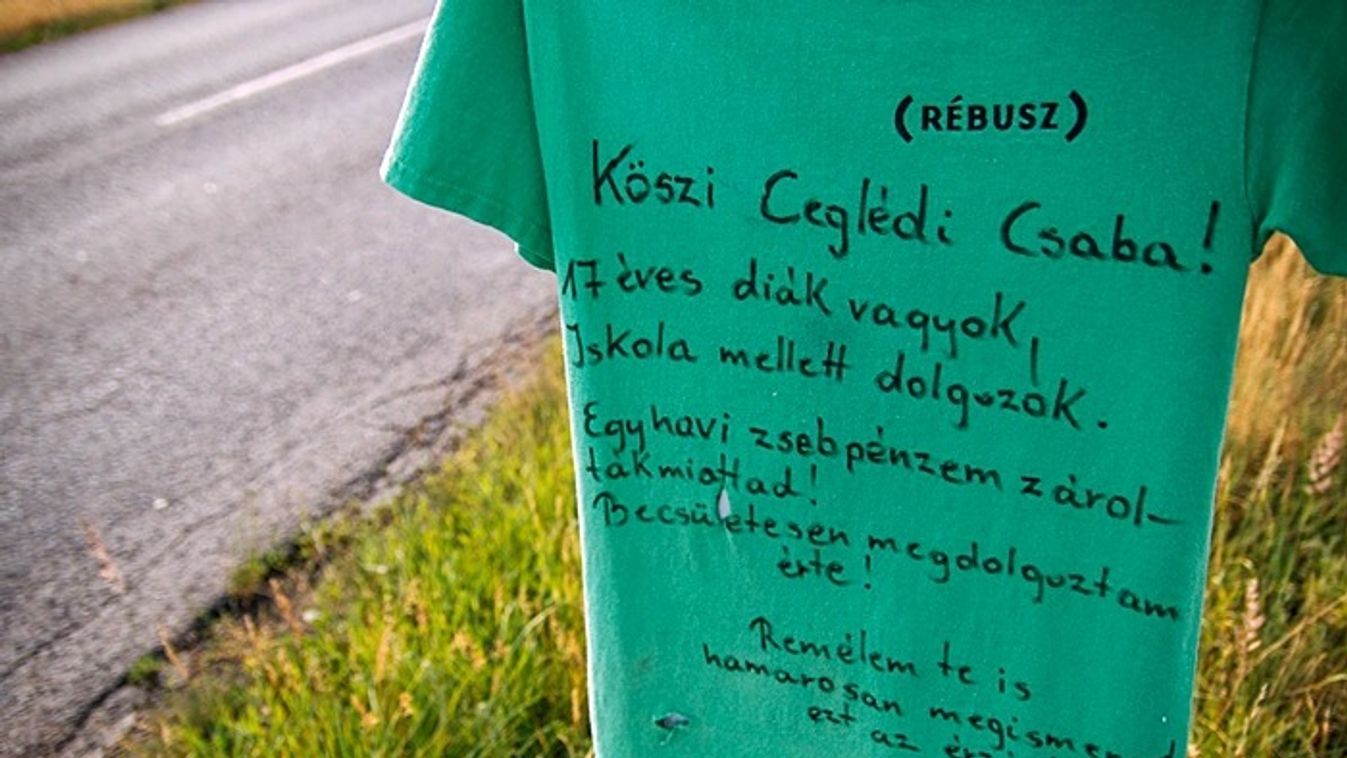 (RÉBUSZ)
Köszi Ceglédi Csaba!
17 éves diák vagyok,
Iskola mellett dolgozok.
Egy havi zsebpénzem zárol-
ták miattad!
Becsületesen megdolgoztam
érte!
Remélem te is
hamarosan
ezt
az